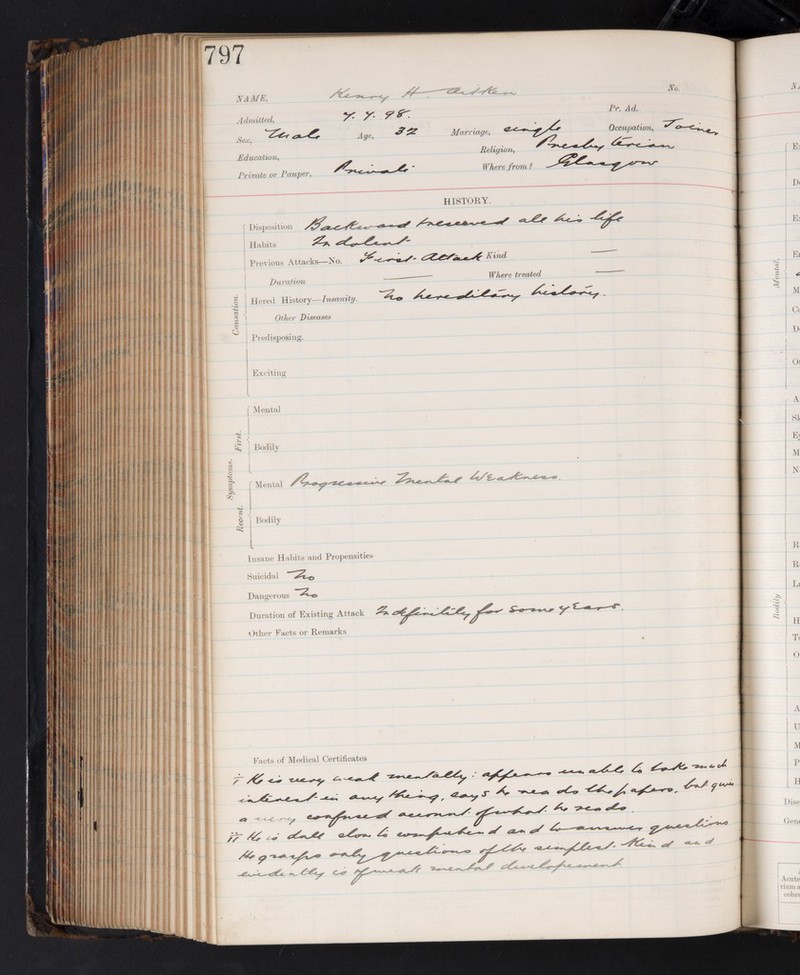 797
NAME, Henry H. Aitken No.
Admitted, 7. 7. 98. Pr. Ad.
Sex, Male Age, 32 Marriage, single Occupation, Joiner
Education, Religion, Presbyterian
Private or Pauper, Private Where from? Glasgow
HISTORY.
Disposition Backward & reserved all his life
Habits Indolent
Previous Attacks—No. First Attack Kind —
Duration — Where treated —
Causation.
Hered History—Insanity. No hereditary history.
Other Diseases
Predisposing.
Exciting
Symptoms. First.
Mental
Bodily
Recent.
Mental Progressive Mental Weakness.
Bodily
Insane Habits and Propensities
Suicidal No
Dangerous No
Duration of Existing Attack Indefinitily for some years.
Other Facts or Remarks
Facts of Medical Certificates
I He is very weak mentally: appears unable to take much
interest in any thing, says he reads the papers, but gives
a very confused account of what he reads.
II He is dull slow to comprehend and to answer questions
He grasps only questions of the simplest kind and
evidently is of weak mental developement
Mental.
Bodily